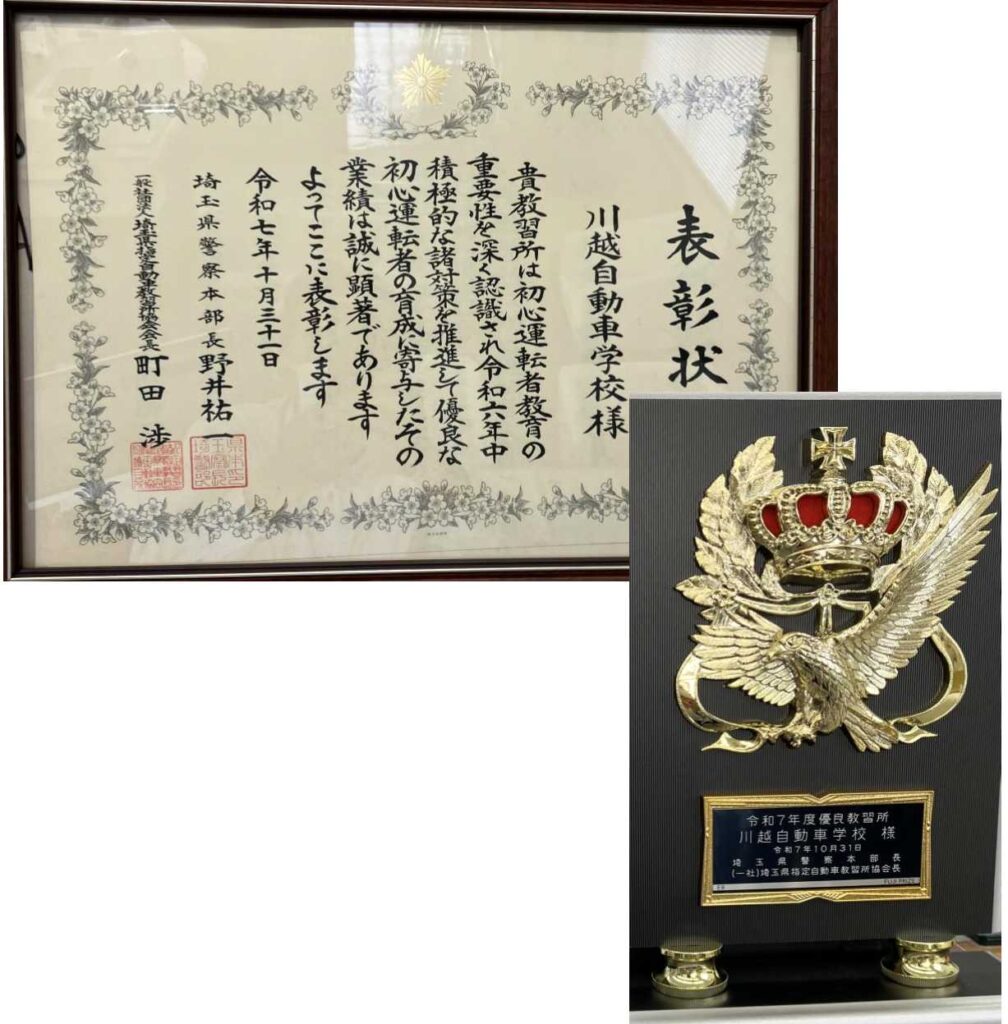 表彰状
川越自動車学校様
貴教習所は初心運転者教育の
重要性を深く認識され令和六年中
積極的な諸対策を推進して優良な
初心運転者の育成に寄与したその
業績は誠に顕著であります
よってここに表彰します
令和七年十月三十一日
埼玉県警察本部長 野井祐一
一般社団法人埼玉県指定自動車教習所協会会長 町田 渉
令和7年度優良教習所
川越自動車学校 様
令和7年10月31日
埼玉県警察本部長
(一社)埼玉県指定自動車教習所協会長